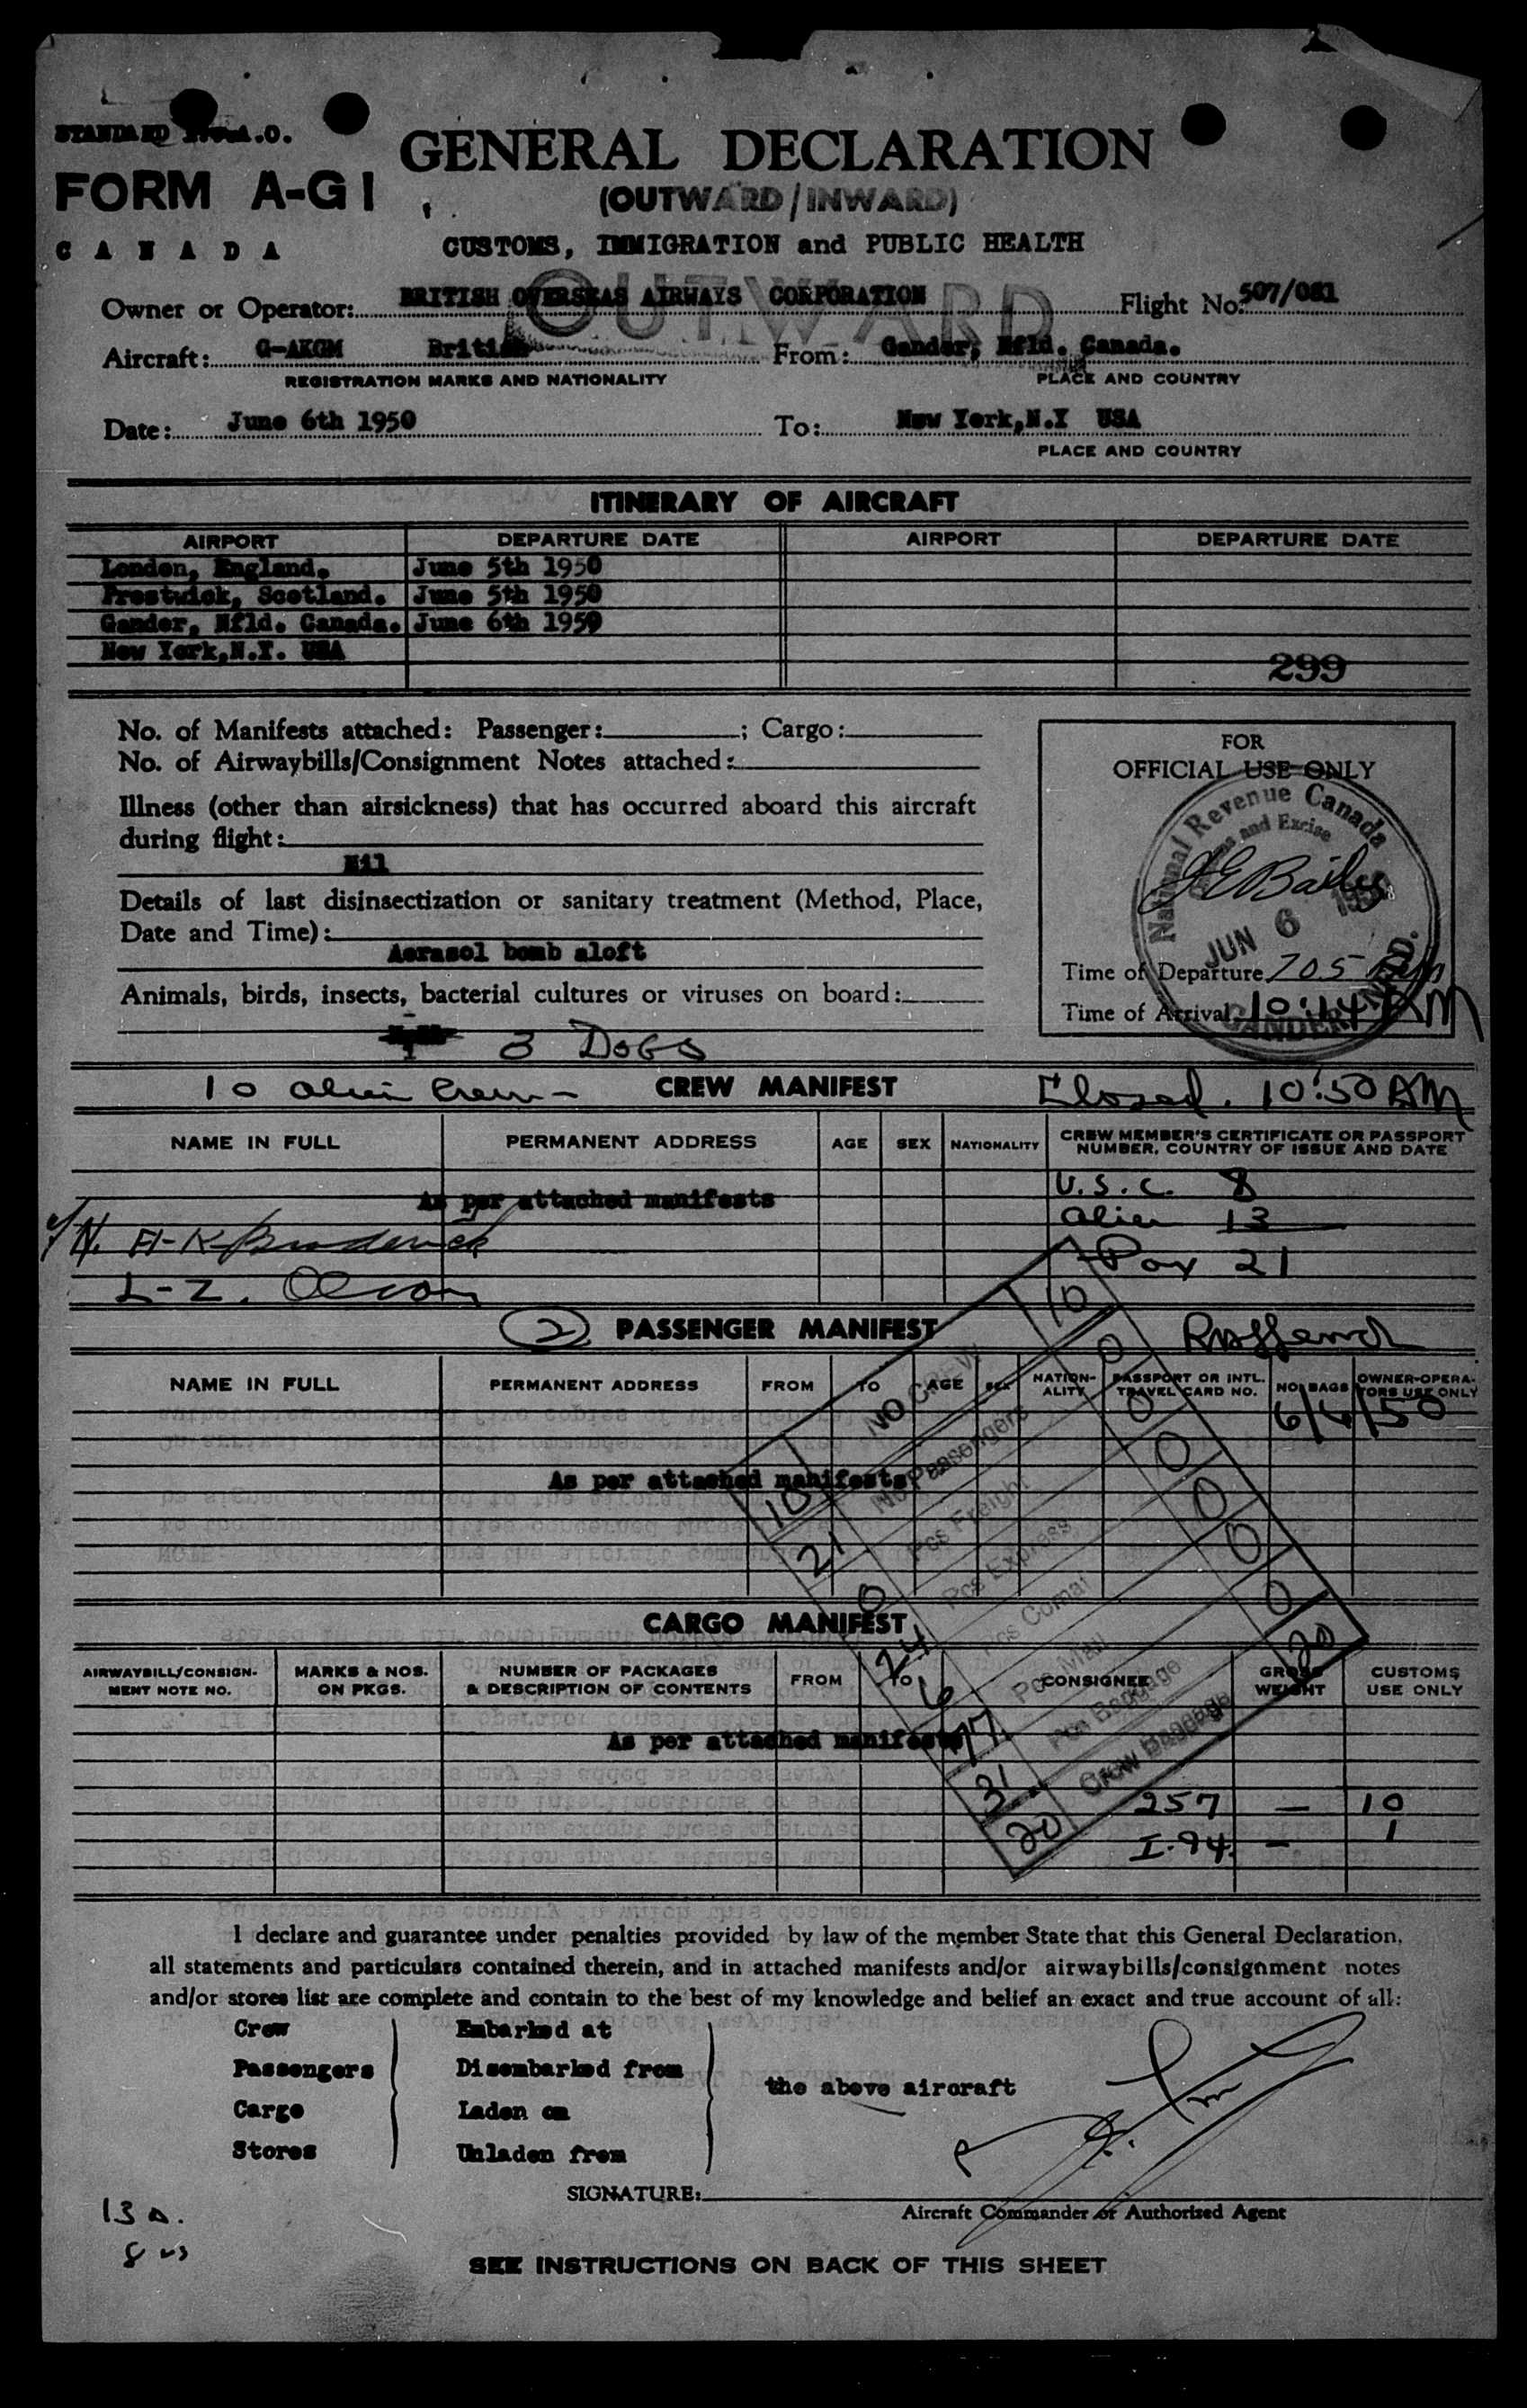 STANDARD I.C.A.O.
FORM A-G1
CANADA
GENERAL DECLARATION
(OUTWARD/INWARD)
CUSTOMS, IMMIGRATION and PUBLIC HEALTH
OUTWARD
Owner or Operator: BRITISH OVERSEAS AIRWAYS CORPORATION Flight No. 507/081
Aircraft: G-AKGM British From: Gander, Nfld. Canada.
REGISTRATION MARKS AND NATIONALITY PLACE AND COUNTRY
Date: June 6th 1950 To: New York,N.Y USA
PLACE AND COUNTRY
ITINERARY OF AIRCRAFT
AIRPORT DEPARTURE DATE AIRPORT DEPARTURE DATE
London, England. June 5th 1950
Prestwick, Scotland. June 5th 1950
Gander, Nfld. Canada. June 6th 1950
New York,N.Y. USA
299
No. of Manifests attached: Passenger: ; Cargo:
No. of Airwaybills/Consignment Notes attached:
Illness (other than airsickness) that has occurred aboard this aircraft
during flight:
Nil
Details of last disinsectization or sanitary treatment (Method, Place,
Date and Time):
Aerasol bomb aloft
Animals, birds, insects, bacterial cultures or viruses on board:
3 DOGS
FOR
OFFICIAL USE ONLY
National Revenue Canada
Customs and Excise
JEBaily
JUN 6 1950
GANDER NFLD.
Time of Departure 705
Time of Arrival 10:14 AM
10 alien Crew - CREW MANIFEST Closed. 10:50 AM
NAME IN FULL PERMANENT ADDRESS AGE SEX NATIONALITY CREW MEMBER'S CERTIFICATE OR PASSPORT
NUMBER, COUNTRY OF ISSUE AND DATE
U.S.C. 8
As per attached manifests
alien 13
H-K Broderick
Pax 21
L-Z. Olson
2 PASSENGER MANIFEST
NAME IN FULL PERMANENT ADDRESS FROM TO AGE SEX NATION-
ALITY PASSPORT OR INTL.
TRAVEL CARD NO. NO. BAGS OWNER-OPERA-
TORS USE ONLY
6/6/50
As per attached manifests
10 NO CREW 10
21 No Passengers 0
0 Pcs Freight 0
24 Pcs Express 0
6 Pcs Comat 0
17 Pcs Mail 0
31 Pcs Baggage 0
20 Crew Baggage 20
CARGO MANIFEST
AIRWAYBILL/CONSIGN-
MENT NOTE NO. MARKS & NOS.
ON PKGS. NUMBER OF PACKAGES
& DESCRIPTION OF CONTENTS FROM TO CONSIGNEE GROSS
WEIGHT CUSTOMS
USE ONLY
As per attached manifests
257 — 10
I-94. — 1
I declare and guarantee under penalties provided by law of the member State that this General Declaration,
all statements and particulars contained therein, and in attached manifests and/or airwaybills/consignment notes
and/or stores list are complete and contain to the best of my knowledge and belief an exact and true account of all:
Crew Embarked at
Passengers Disembarked from
the above aircraft
Cargo Laden on
Stores Unladen from
SIGNATURE:
Aircraft Commander or Authorized Agent
13 a.
8 us
SEE INSTRUCTIONS ON BACK OF THIS SHEET